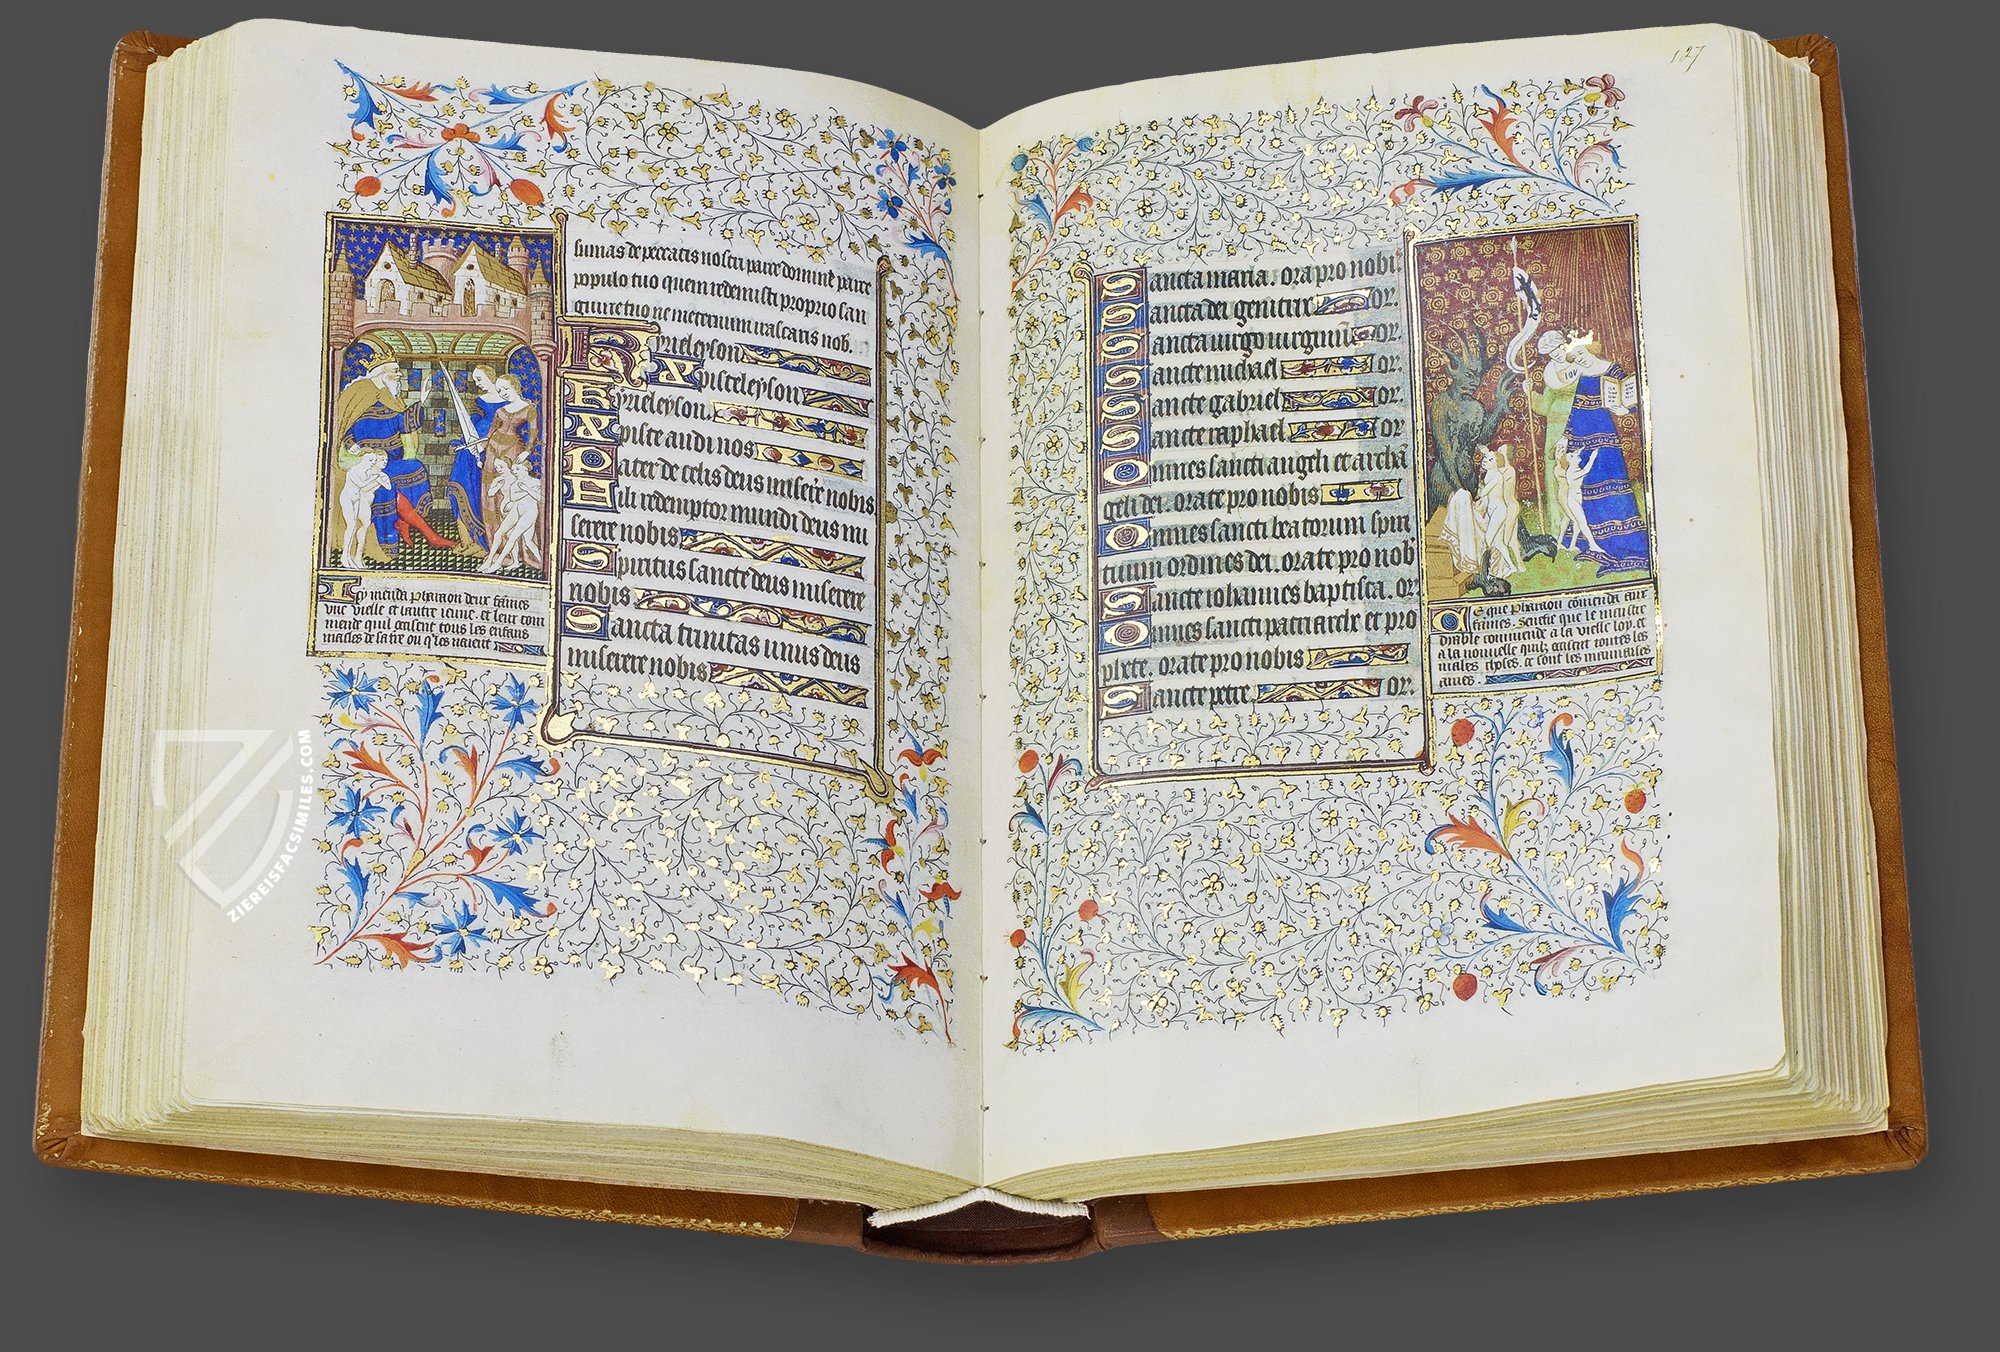 sumas de peccatis nostri parce domine parce
populo tuo quem redemisti proprio san
guine tuo ne in eternum irascaris nob.
Kyrieleyson
Xpisteleyson
Kyrieleyson.
Xpiste audi nos
Pater de celis deus miserere nobis
Fili redemptor mundi deus mi
serere nobis
Spiritus sancte deus miserere
nobis
Sancta trinitas unus deus
miserere nobis
Icy menda Pharaon deux fames
une vielle et lautre ienne. et leur com
mende quil occisent tous les enfans
masles de la tre ou qles naient
127
Sancta maria. ora pro nobis
Sancta dei genitrix or.
Sancta virgo virginum or.
Sancte michael or.
Sancte gabriel or.
Sancte raphael or
Omnes sancti angeli et archan
geli dei. orate pro nobis
Omnes sancti beatorum spiri
tuum ordines dei. orate pro nob
Sancte iohannes baptista. or
Omnes sancti patriarche et pro
phete. orate pro nobis
Sancte petre or.
Ce que pharaon comenda aux
fames. Senefie que le menistre
diable commende a la vielle loy. et
a la nouvelle quilz occisent toutes les
masles choses. ce sont les
ames.
ZIEREISFACSIMILES.COM